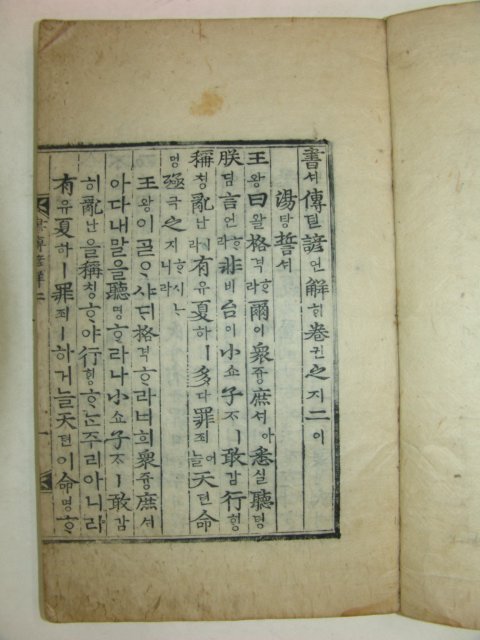 書셔傳뎐諺언解ᄒᆡ卷권之지二이
湯탕誓셔
王왕曰왈格격ᄒᆞ라爾이衆즁庶셔아悉실聽텽
朕딤言언ᄒᆞ라非비台이小쇼子ᄌᆞㅣ敢감行ᄒᆡᆼ
稱칭亂난라有유夏하ㅣ多다罪죄어늘天텬命
명殛극之지ᄒᆞ시ᄂᆞ니라
王왕이ᄀᆞᆯᄋᆞ샤ᄃᆡ格격ᄒᆞ라너희衆즁庶셔
아다내말을聽텽ᄒᆞ라나小쇼子ᄌᆞㅣ敢감
히亂난을稱칭ᄒᆞ야行ᄒᆡᆼᄒᆞᄂᆞᆫ주리아니라
有유夏하ㅣ罪죄ㅣ하거늘天텬이命명ᄒᆞ
書傳諺解二